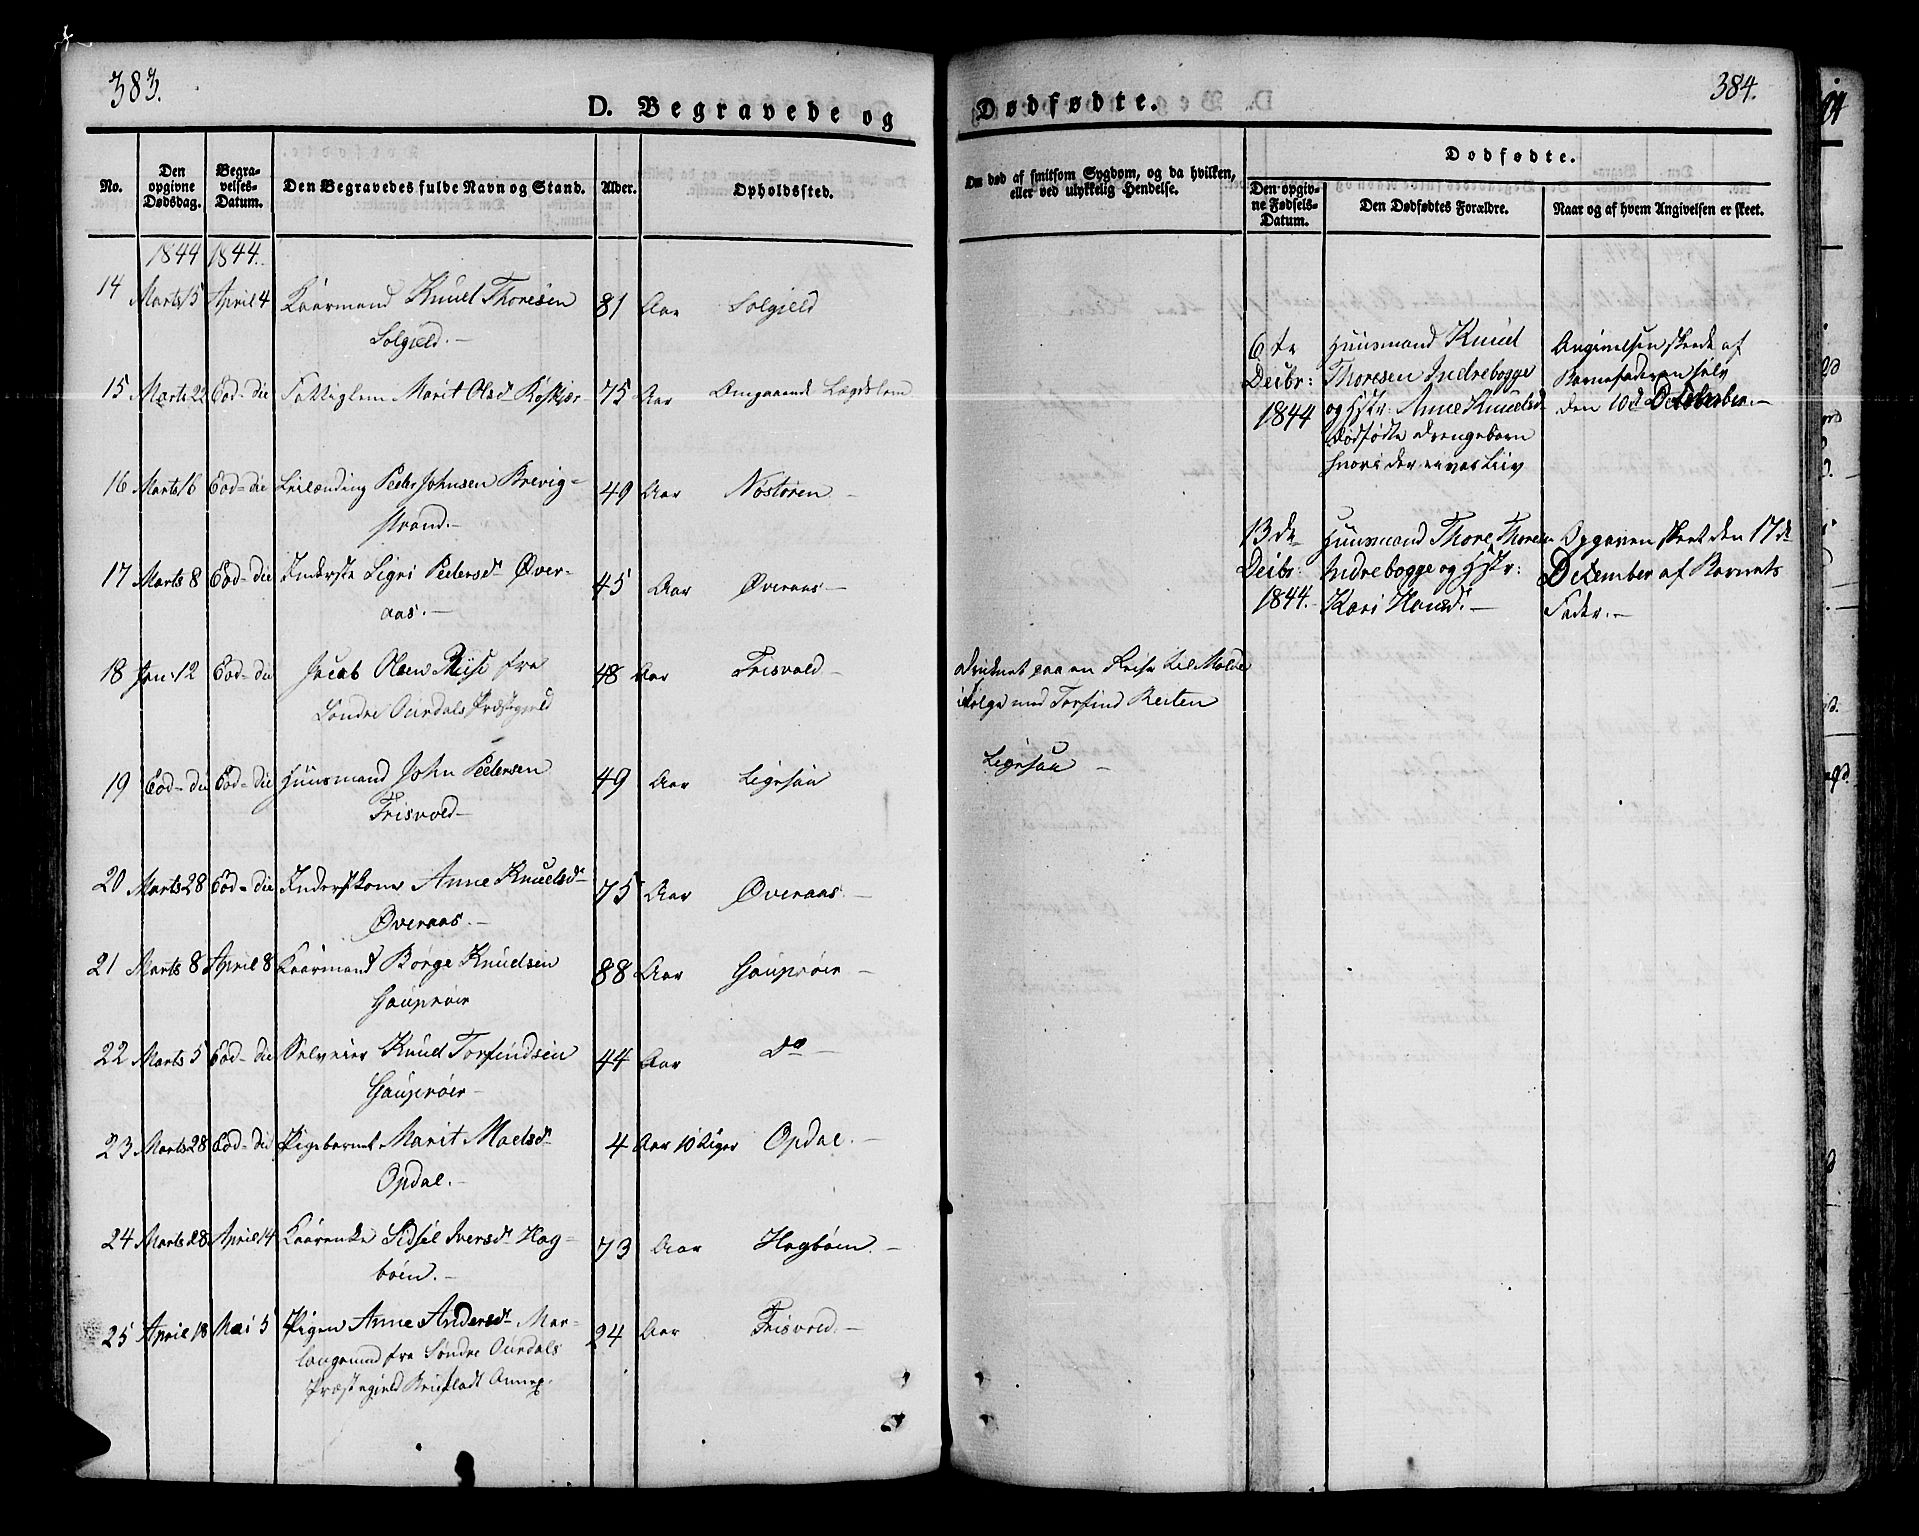 383.
D. Begravede og
No.
Den opgivne Dødsdag.
Begravelses-Datum.
Den Begravedes fulde Navn og Stand.
Alder.
Opholdssted.
1844 1844.
14 Marts 15 April 4 Kaarmand Knud Thoresen 81 Aar Solgjeld
Solgjeld.-
15 Marts 22 Eod-die Fattiglem Marit Olsd 75 Aar Omgaaende Lægdslem
16 Marts 16 Eod-die Leilænding Peder Johnsen Brevig- 49 Aar Nøstøren -
strand.-
17 Marts 8 Eod-die Inderste Sigri Pedersd Øver- 45 Aar Øveraas -
aas.-
18 Jan. 12 Eod-die Jacob Olsen Riise fra 48 Aar Frisvold -
Søndre Ourdals Præstegjeld
19 Eod-die Eod-die Huusmand John Pedersen 49 Aar Ligesaa
Frisvold-
20 Marts 28 Eod-die Inderstkone Anne Knudsd 75 Aar Øveraas. -
Øveraas.-
21 Marts 8 April 8 Kaarmand Børge Knudsen 88 Aar Gauprøer -
Gauprøer
22 Marts 5 Eod-die Selveier Knud Torfindsen 44 Aar Do -
Gauprøer-
23 Marts 28 Eod-die Pigebarnet Marit Madsd 4 Aar 10 Uger Opdal. -
Opdal.-
24 Marts 28 April 14 Kaarenke Sidsel Iversd Hag- 73 Aar Hagbøen. -
bøen.-
25 April 18 Mai 5 Pigen Anne Andersd Mar- 24 Aar Frisvold.-
fra Søndre Ourdals
Præstegjeld Annex.
384.
Dødfødte.
Om død af smitsom Sygdom, og da hvilken, eller ved ulykkelig Hendelse.
Dødfødte.
Den opgivne Fødsels-Datum.
Den Dødfødtes Forældre.
Naar og af hvem Angivelsen er skeet.
6te Huusmand Knud Angivelsen skeede af
Decbr: Thoresen Indrebogge Barnefaderen selv
1844 og Hstr: Anne Knudsd den 10de December.-
dødfødte Drengebarn
hvori der ei var Liv
13de Huusmand Thore Thoresen Opgaven skeet den 17de
Decbr: Indrebogge og Hstr: December af Barnets
1844.- Kari Hansd.- Fader.-
druknet paa en Reise til Molde
i Følge med Torfind Reiten
Ligesaa -